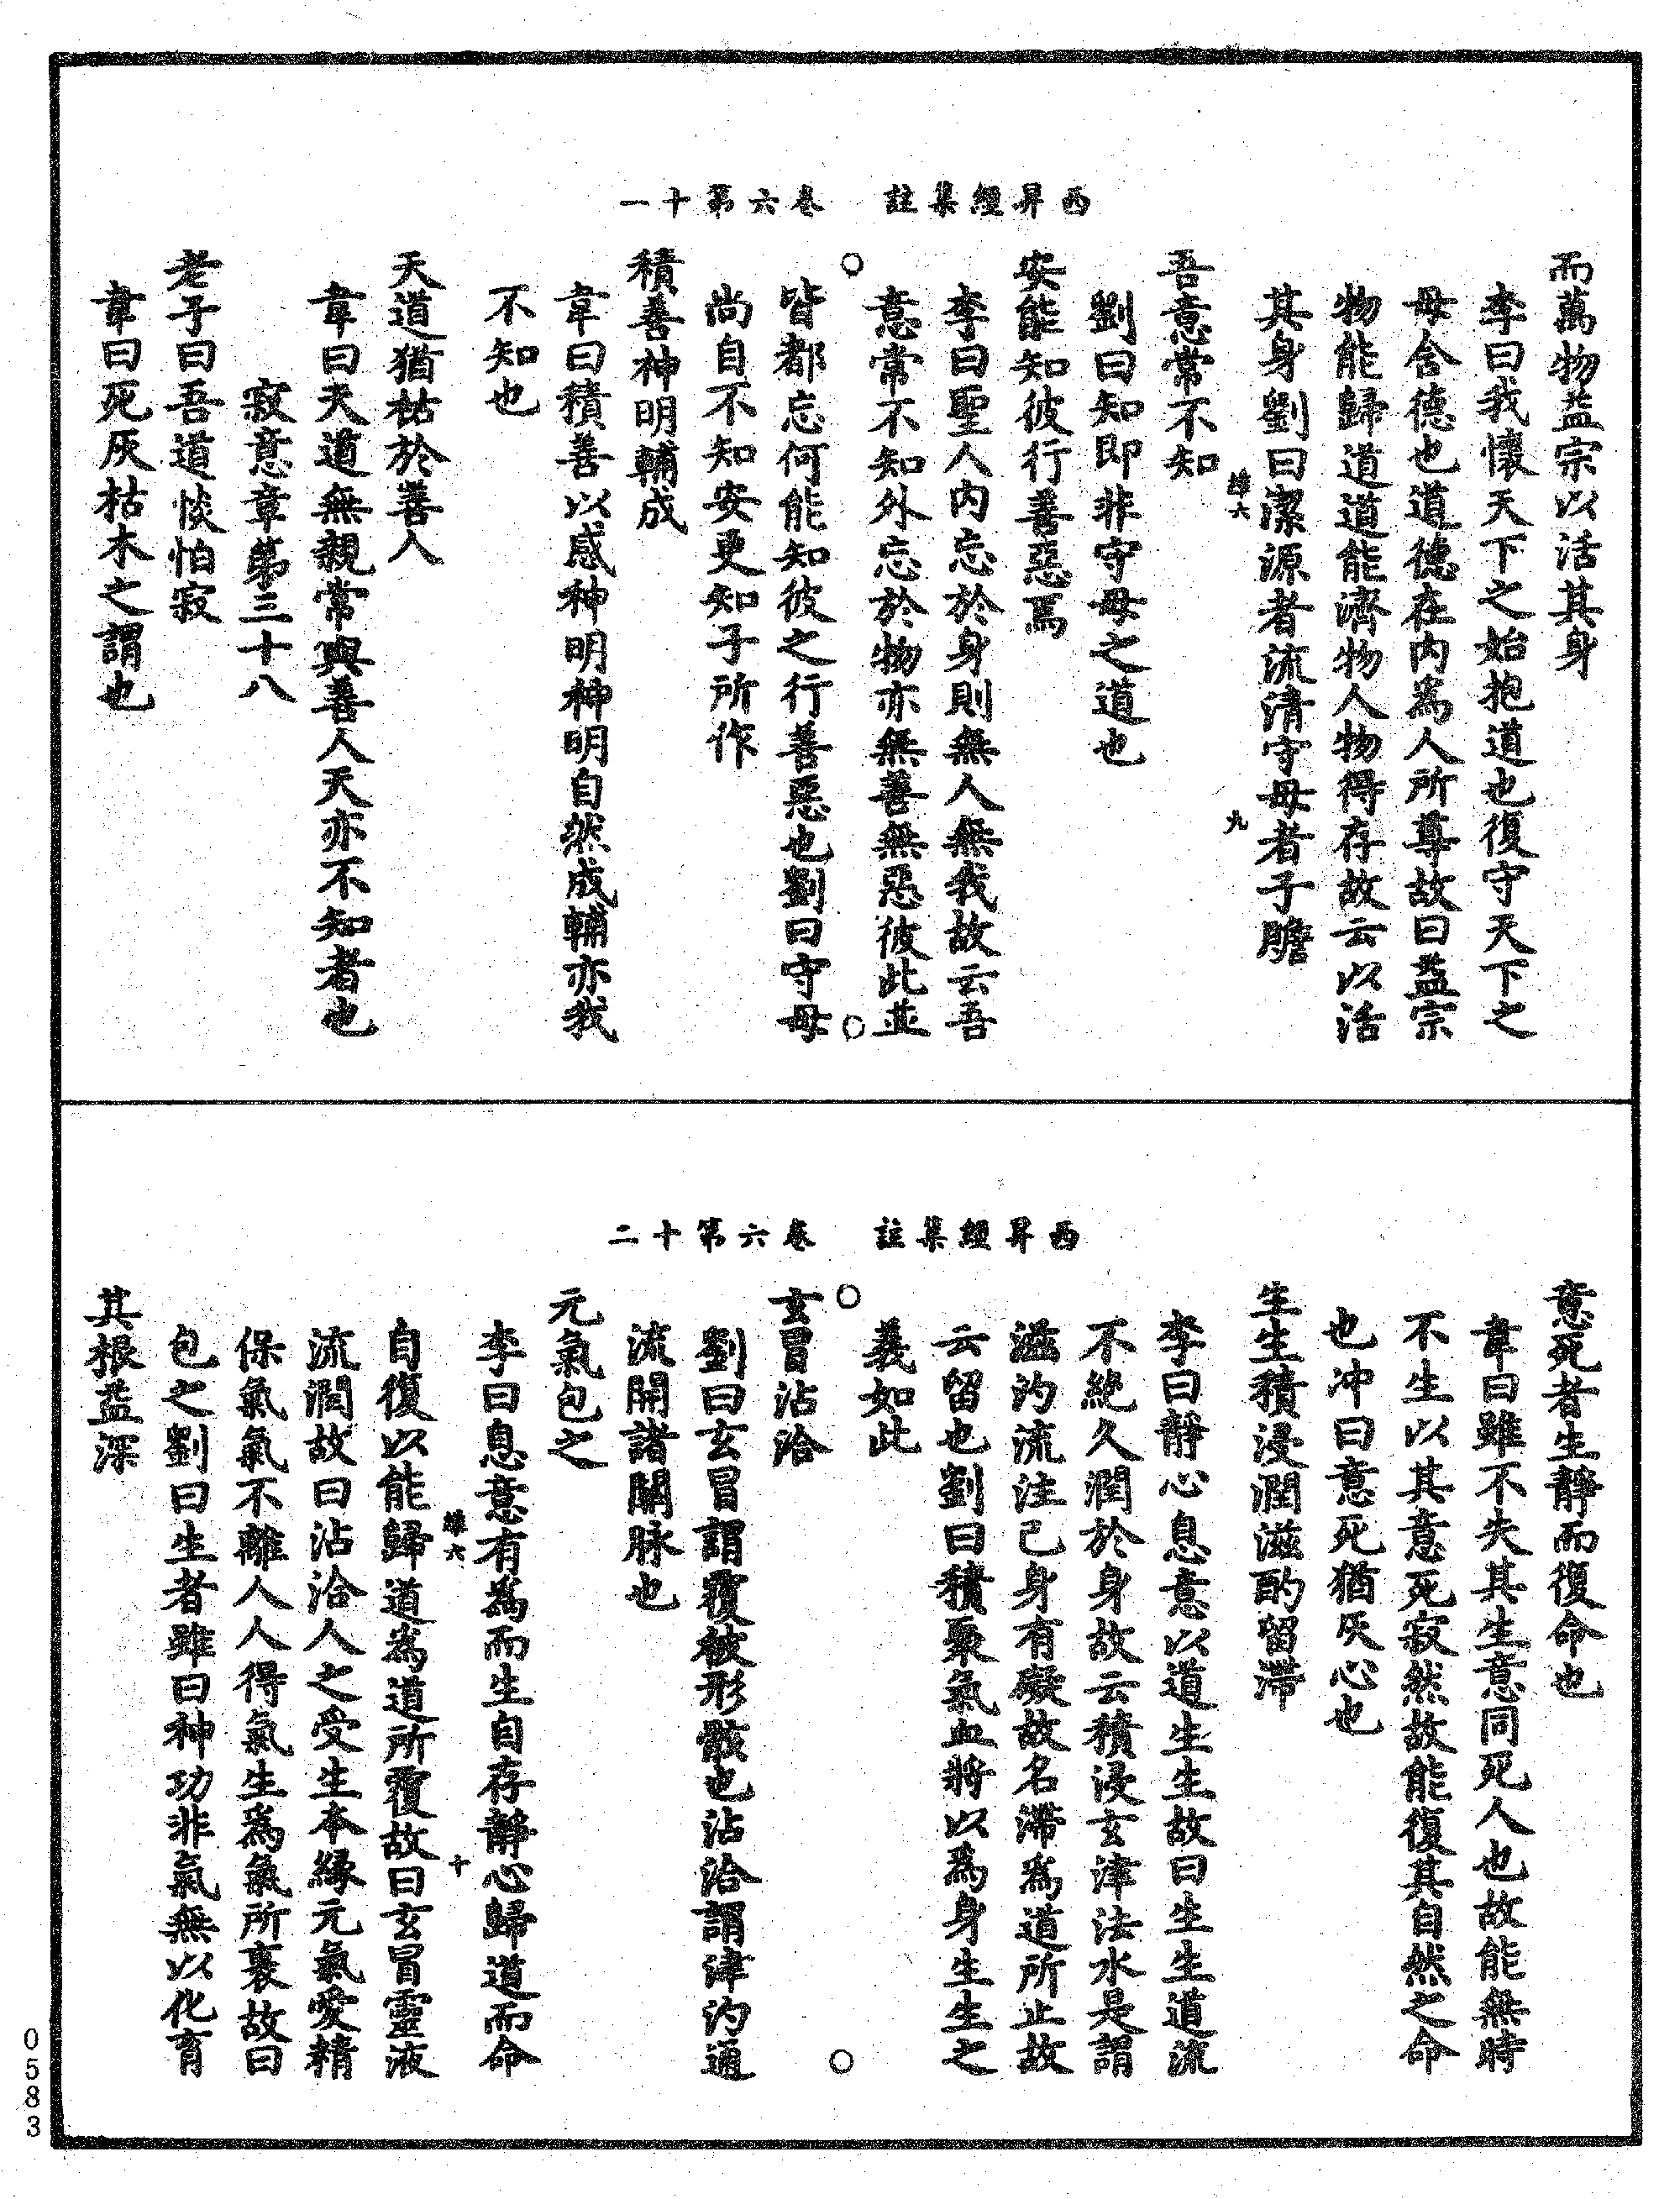 西昇經集註　卷六第十一
而萬物益宗以活其身
李曰我懷天下之始抱道也復守天下之
母含德也道德在內爲人所尊故曰益宗
物能歸道道能濟物人物得存故云以活
其身劉曰潔源者流清守母者子贍
雄六　九
吾意常不知
劉曰知即非守母之道也
安能知彼行善惡焉
李曰聖人內忘於身則無人無我故云吾
意常不知外忘於物亦無善無惡彼此並
皆都忘何能知彼之行善惡也劉曰守母
尚自不知安更知子所作
積善神明輔成
韋曰積善以感神明神明自然成輔亦我
不知也
天道猶枯於善人
韋曰天道無親常與善人天亦不知者也
寂意章第三十八
老子曰吾道惔怕寂
韋曰死灰枯木之謂也
西昇經集註　卷六第十二
意死者生靜而復命也
韋曰雖不失其生意同死人也故能無時
不生以其意死寂然故能復其自然之命
也冲曰意死猶灰心也
生生積浸潤滋酌留滯
李曰靜心息意以道生生故曰生生道流
不絕久潤於身故云積浸玄津法水是謂
滋汋流注己身有礙故名滯爲道所止故
云留也劉曰積聚氣血將以爲身生生之
義如此
玄冒沾洽
劉曰玄冒謂覆被形骸也沾洽謂津汋通
流開諸關脉也
元氣包之
李曰息意有為而生自存靜心歸道而命
雄六　十
自復以能歸道道爲道所覆故曰玄冒靈液
流潤故曰沾洽人之受生本緣元氣愛精
保氣氣不離人人得氣生爲氣所裹故曰
包之劉曰生者雖曰神功非氣無以化育
其根益深
0583